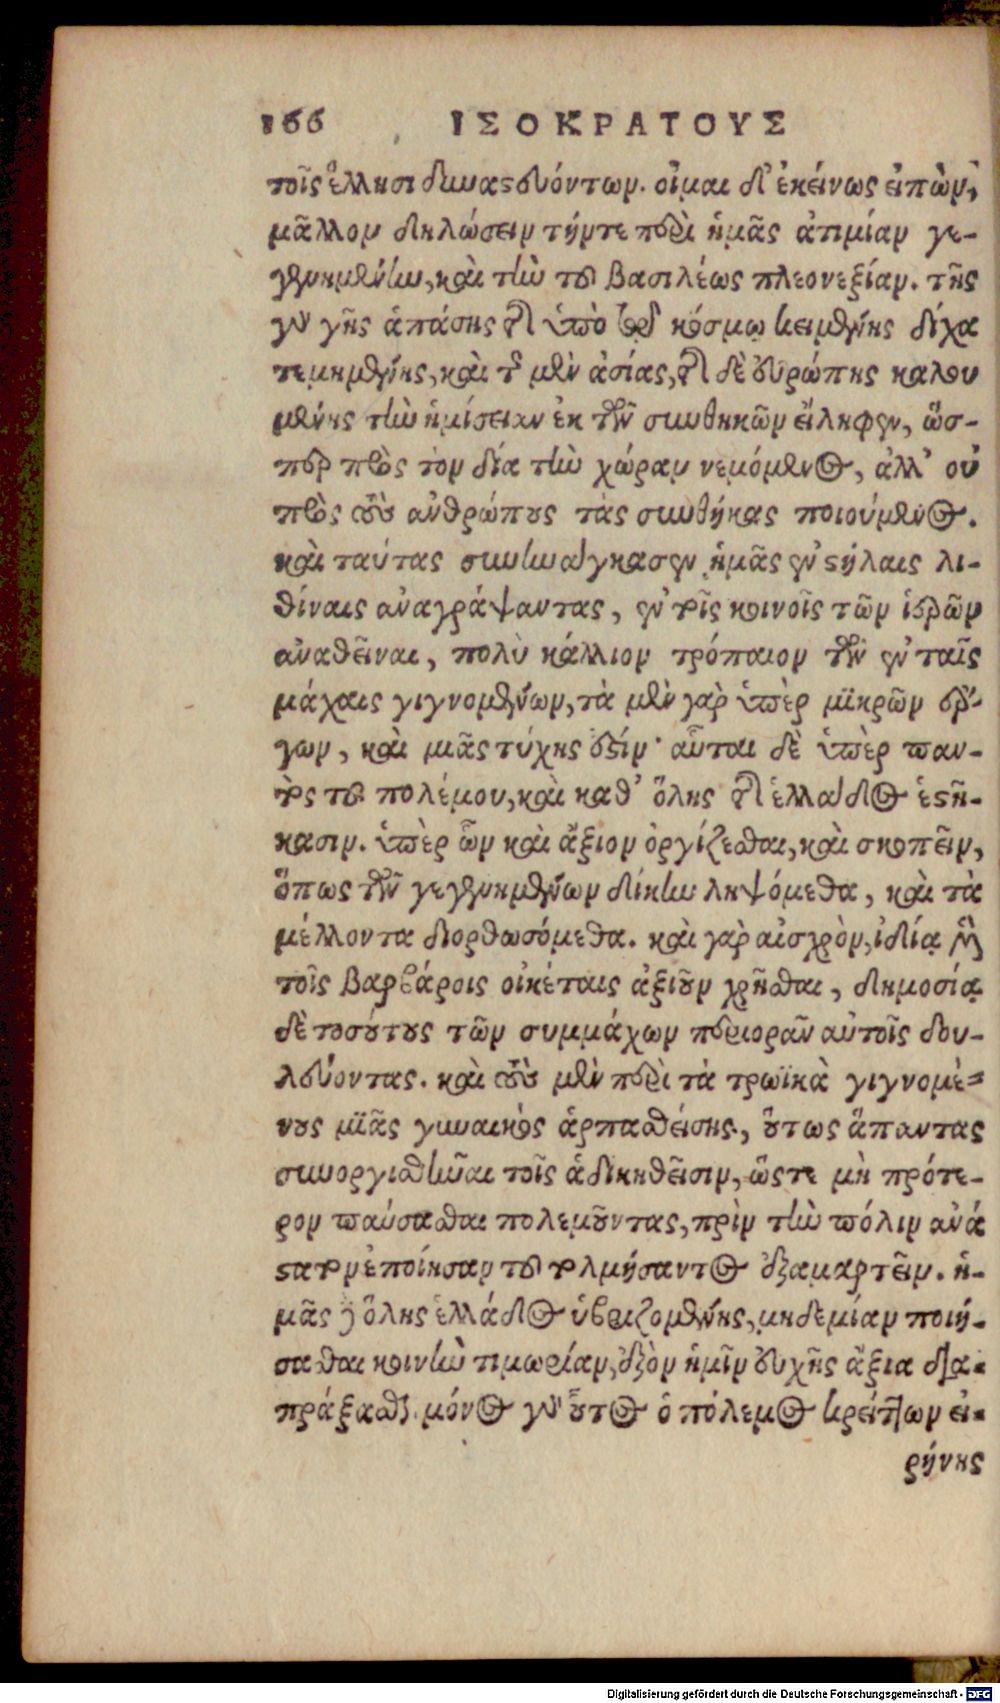 166 ΙΣΟΚΡΑΤΟΥΣ
τοῖς ἕλλησι δυναστευόντων. οἶμαι δ' ἐκείνως εἰπὼν,
μᾶλλον δηλώσειν τήν τε περὶ ἡμᾶς ἀτιμίαν γε-
γενημένην, καὶ τὴν τοῦ βασιλέως πλεονεξίαν. τῆς
γὰρ γῆς ἁπάσης τῆς ὑπὸ τοῦ κόσμῳ κειμένης δίχα
τετμημένης, καὶ τῆς μὲν ἀσίας, τῆς δὲ εὐρώπης καλου
μένης τὴν ἡμίσειαν ἐκ τῶν συνθηκῶν εἴληφεν, ὥσ-
περ πρὸς τὸν δία τὴν χώραν νεμόμενος, ἀλλ' οὐ
πρὸς τοὺς ἀνθρώπους τὰς συνθήκας ποιούμενος.
καὶ ταύτας συνηνάγκασεν ἡμᾶς ἐν στήλαις λι-
θίναις ἀναγράψαντας, ἐν τοῖς κοινοῖς τῶν ἱερῶν
ἀναθεῖναι, πολὺ κάλλιον τρόπαιον τῶν ἐν ταῖς
μάχαις γιγνομένων, τὰ μὲν γὰρ ὑπὲρ μϊκρῶν ἔρ-
γων, καὶ μιᾶς τύχης ἐστίν· αὗται δὲ ὑπὲρ παν-
τὸς τοῦ πολέμου, καὶ καθ' ὅλης τῆς ἑλλάδος ἑστή-
κασιν. ὑπὲρ ὧν καὶ ἄξιον ὀργίζεσθαι, καὶ σκοπεῖν,
ὅπως τῶν γεγενημένων δίκην ληψόμεθα, καὶ τὰ
μέλλοντα διορθωσόμεθα. καὶ γὰρ αἰσχρὸν, ἰδίᾳ μὲν
τοῖς βαρβάροις οἰκέταις ἀξιοῦν χρῆσθαι, δημοσίᾳ
δὲ τοσούτους τῶν συμμάχων περιορᾶν αὐτοῖς δου-
λεύοντας. καὶ τοὺς μὲν περὶ τὰ τρωϊκὰ γιγνομέ-
νους μϊᾶς γυναικὸς ἁρπασθείσης, οὕτως ἅπαντας
συνοργισθῆναι τοῖς ἀδικηθεῖσιν, ὥστε μὴ πρότε-
ρον παύσασθαι πολεμοῦντας, πρὶν τὴν πόλιν ἀνά
στατον ἐποίησαν τοῦ τολμήσαντος ἐξαμαρτεῖν. ἡ-
μᾶς δὲ ὅλης ἑλλάδος ὑβριζομένης, μηδεμίαν ποιή-
σασθαι κοινὴν τιμωρίαν, ἐξὸν ἡμῖν εὐχῆς ἄξια δια-
πράξασθαι. μόνος γὰρ οὗτος ὁ πόλεμος κρείττων εἰ-
ρήνης
Digitalisierung gefördert durch die Deutsche Forschungsgemeinschaft · DFG